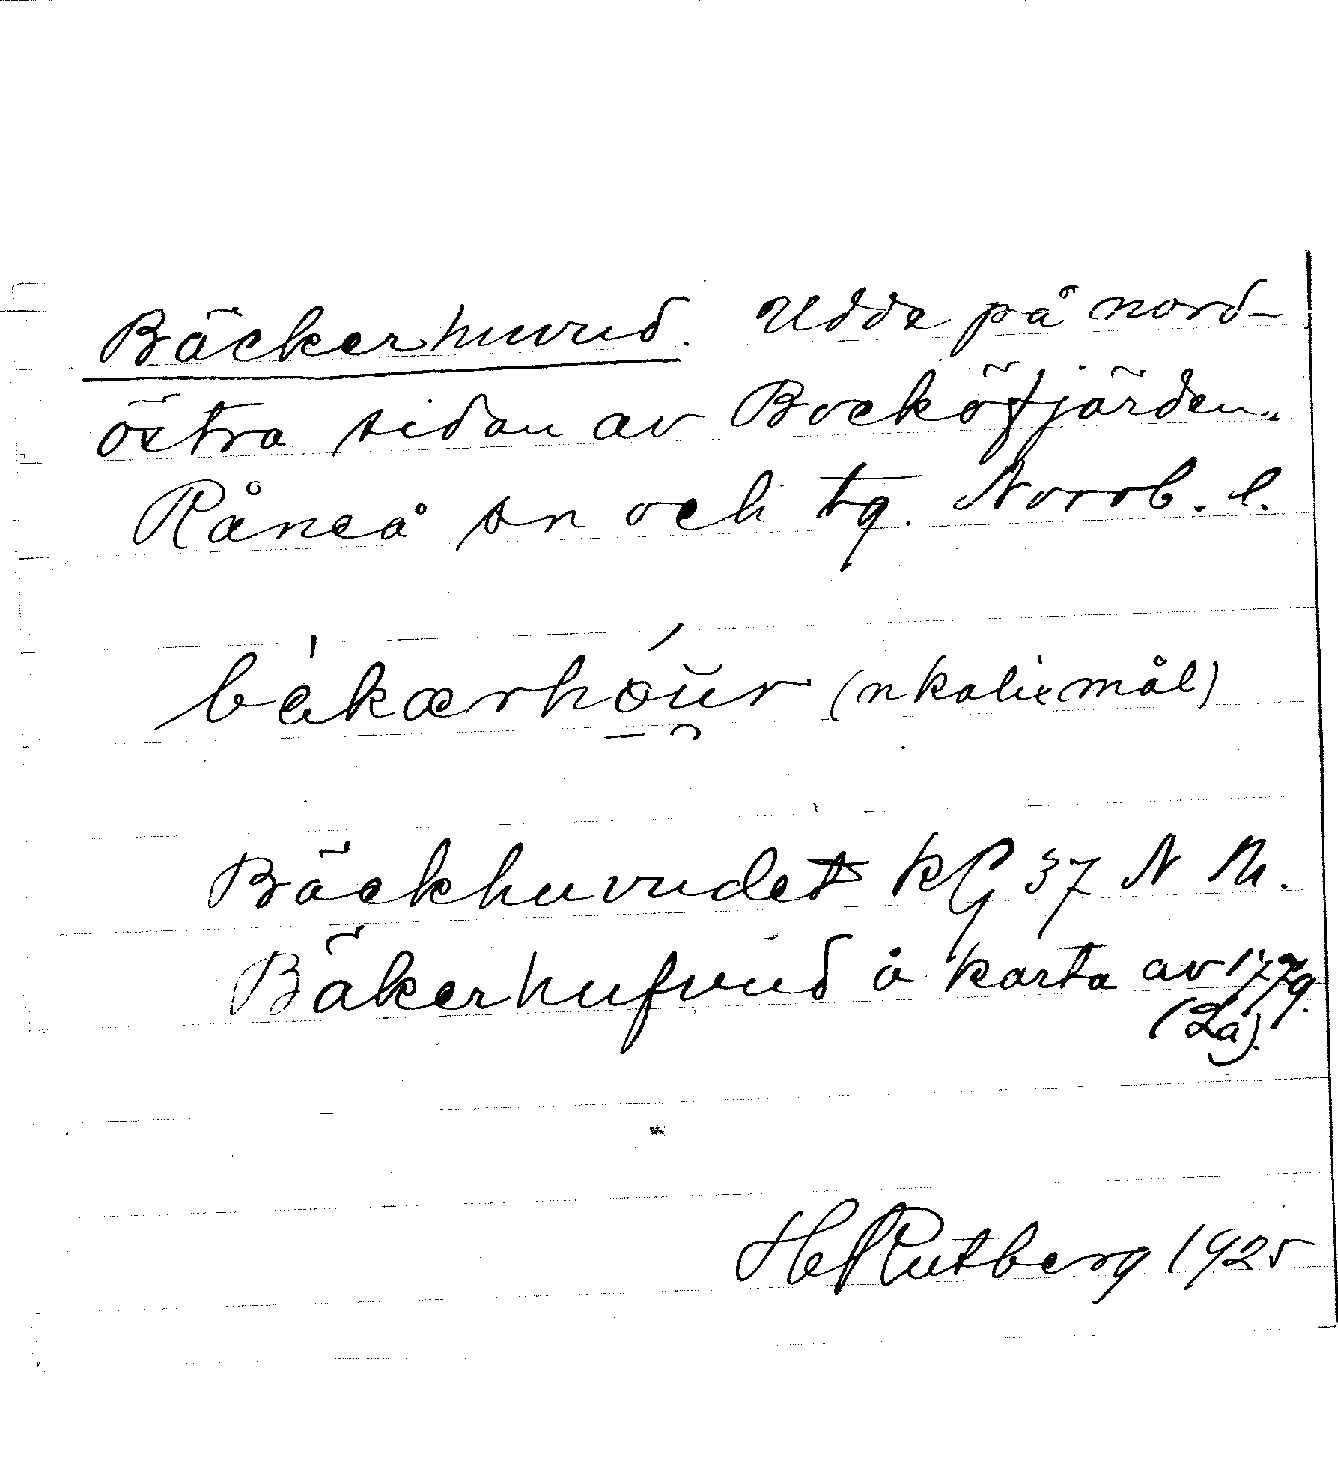 Bäckerhuvud. Udde på nord-
östra sidan av Bocköfjärden.
Råneå sn och tg. Norrb. l.
(nkalix mål)
Bäckhuvudet KG 37 N M.
Bäkerhufvud å karta av 1779.
(2a).
H Rutberg 1925